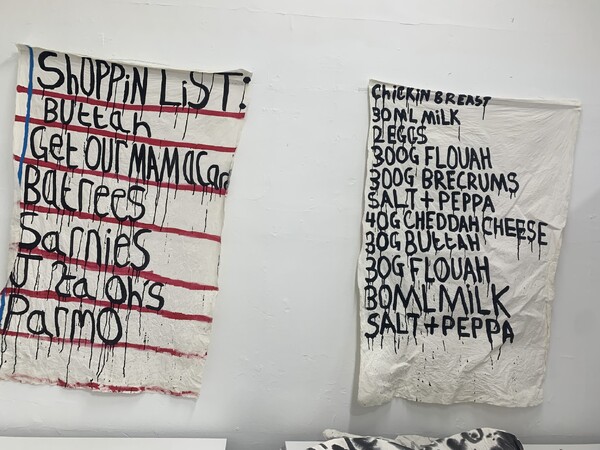 SHOPPiN LiST.
Buttah
Get OUR MAM a Card
Batrees
Sarnies
J'ta Oh's
Parmo
CHiCKiN BREAST
30ML MiLK
2 EGGS
300G FLOUAH
300G BRECRUMS
SALT + PEPPA
40G CHEDDAH CHEESE
30G BUttAH
30G FLOUAH
30ML MiLK
SALT + PEPPA